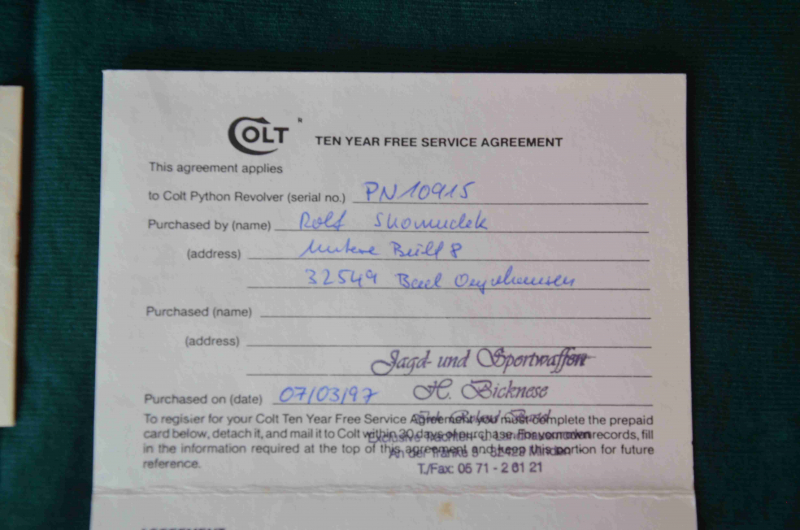 COLT TEN YEAR FREE SERVICE AGREEMENT
This agreement applies
to Colt Python Revolver (serial no.) PN10915
Purchased by (name) Rolf Skomudek
(address) Untere Bült 8
32549 Bad Oeynhausen
Purchased (name)
(address)
Jagd- und Sportwaffen
Purchased on (date) 07/03/97 H. Bicknese
To register for your Colt Ten Year Free Service Agreement you must complete the prepaid
card below, detach it, and mail it to Colt within 30 days of purchase. For your own records, fill
in the information required at the top of this agreement and keep this portion for future
reference.
An der Tränke 5 - 32429 Minden
T./Fax: 05 71 - 2 61 21
AGREEMENT